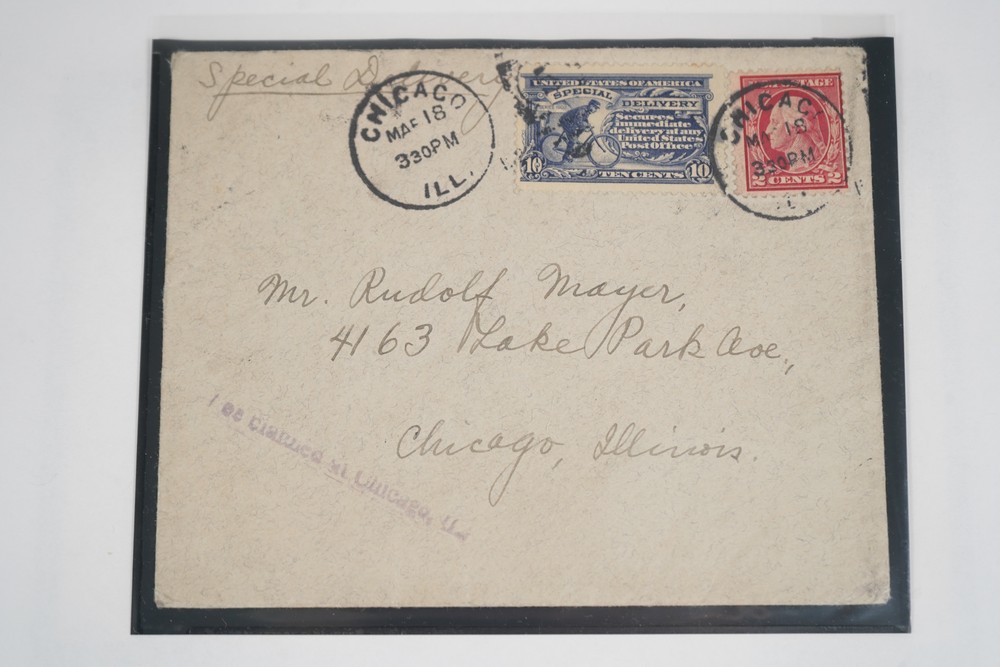 Special Delivery
CHICAGO
MAR 18
330PM
ILL.
UNITED STATES OF AMERICA
SPECIAL DELIVERY
Secures
immediate
delivery at any
United States
Post Office
10 TEN CENTS 10
POSTAGE
2 CENTS 2
CHICAGO
MAR 18
330PM
Mr. Rudolf Mayer,
4163 Lake Park Ave.,
Chicago, Illinois.
Fee claimed at Chicago, Ill.